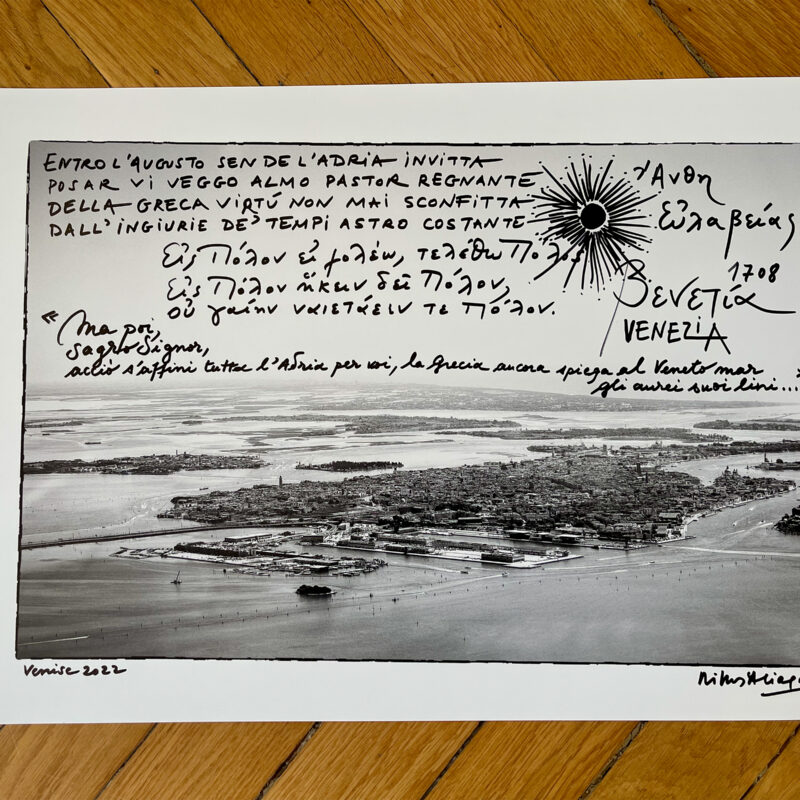 ENTRO L'AUGUSTO SEN DE L'ADRIA INVITTA
POSAR VI VEGGO ALMO PASTOR REGNANTE
DELLA GRECA VIRTÚ NON MAI SCONFITTA
DALL'INGIURIE DE' TEMPI ASTRO COSTANTE
Εἰς Πόλον εἰ μολέω, τελέθω Πόλος
Εἰς Πόλον ἥκειν δεῖ Πόλον,
οὐ γαίην ναιετάειν τε Πόλον.
Ἄνθη
Εὐλαβείας
1708
Βενετία
VENEZIA
« Ma poi,
sagro Signor,
acciò s'affini tutta l'Adria per voi, la Grecia ancora spiega al Veneto mar
gli aurei suoi lini...
Venise 2022